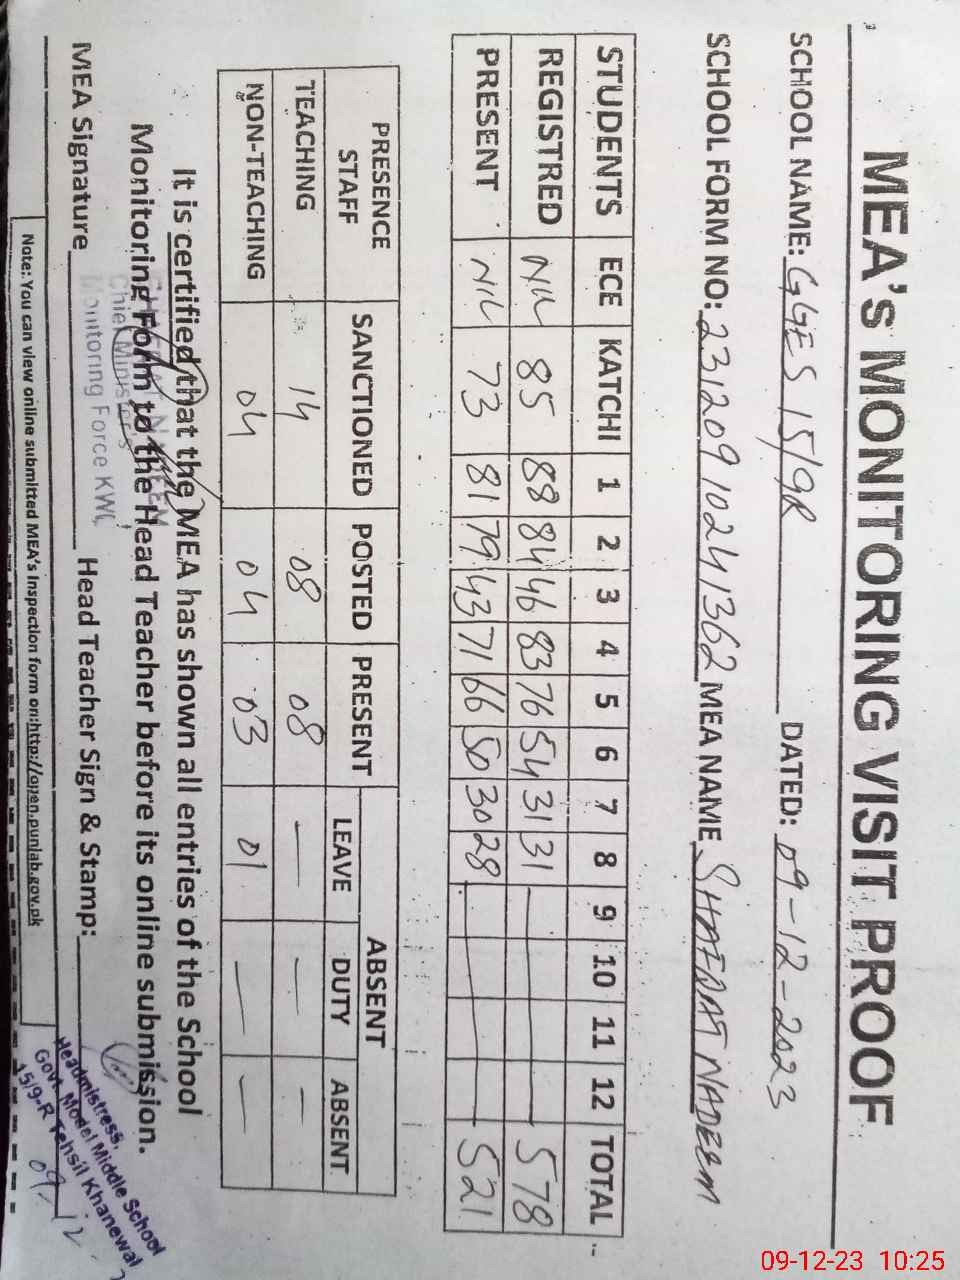 MEA's MONITORING VISIT PROOF
SCHOOL NAME: GGES 15/9R DATED: 09-12-2023
SCHOOL FORM NO: 231209102441362 MEA NAME SHAFQAT NADEEM
STUDENTS ECE KATCHI 1 2 3 4 5 6 7 8 9 10 11 12 TOTAL
REGISTRED NIL 85 88 84 46 83 76 54 31 31 — 578
PRESENT NIL 73 81 79 43 71 66 50 30 28 — 521
PRESENCE STAFF SANCTIONED POSTED PRESENT ABSENT
LEAVE DUTY ABSENT
TEACHING 14 08 08 — — —
NON-TEACHING 04 04 03 01 — —
It is certified that the MEA has shown all entries of the School
Monitoring Form to the Head Teacher before its online submission.
NADEEM
Chief Minister's
Monitoring Force KWL
MEA Signature Head Teacher Sign & Stamp:
Headmistress,
Govt. Model Middle School
15/9-R Tehsil Khanewal
09-12-
Note: You can view online submitted MEA's Inspection form on:http://open.punjab.gov.pk
09-12-23 10:25